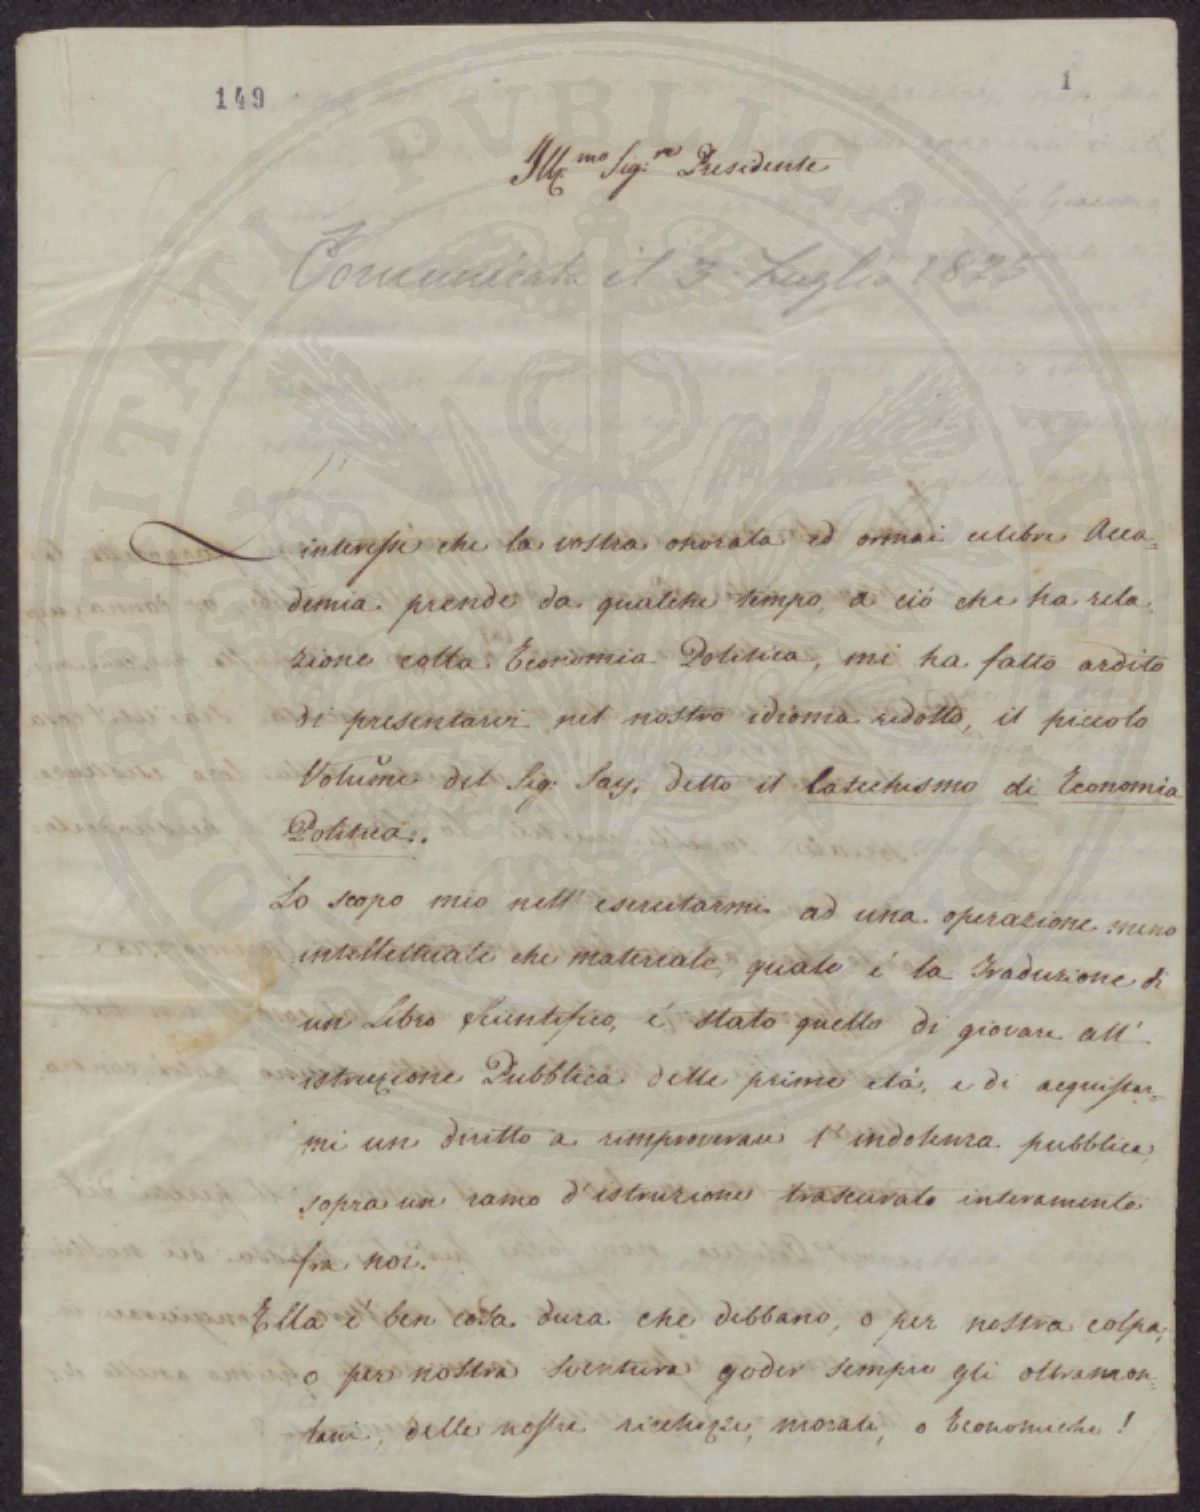 149
1
Ill.mo Sig.re Presidente
Comunicata il 3 Luglio 1825
L'interesse che la vostra onorata ed ormai celebre Acca=
demia prende da qualche tempo, a ciò che ha rela
zione colla Economia Politica, mi ha fatto ardito
di presentarvi nel nostro idioma ridotto, il piccolo
Volume del Sig. Say, detto il Catechismo di Economia
Politica.
Lo scopo mio nell' esercitarmi ad una operazione meno
intellettuale che materiale, quale é la Traduzione di
un Libro Scientifico, é stato quello di giovare all'
istruzione Pubblica delle prime età, e di acquistar=
mi un diritto a rimproverare l' indolenza pubblica,
sopra un ramo d' istruzione trascurato interamente
fra noi.
Ella é ben cosa dura che debbano, o per nostra colpa,
o per nostra sventura goder sempre gli oltramon=
tani, delle nostre ricchezze, morali, o Economiche!
PUBLICAE